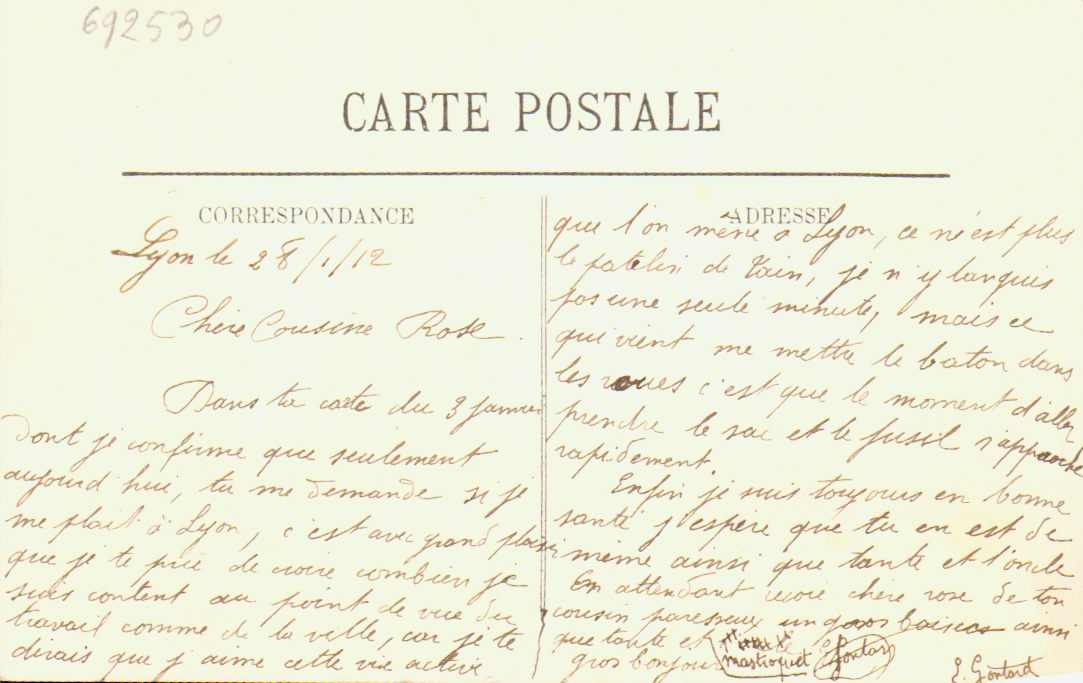 692530
CARTE POSTALE
CORRESPONDANCE
Lyon le 28/1/12
Chère Cousine Rose.
Dans ta carte du 3 janvier
dont je confirme que seulement
aujourd hui, tu me demande si je
me plait à Lyon, c'est avec grand plaisir
que je te prie de croire combien je
suis content au point de vue du
travail comme de la ville, car je te
dirais que j'aime cette vie active
ADRESSE
que l'on mène à Lyon, ce n'est plus
le patelin de Tain, je n'y languis
pas une seule minute, mais ce
qui vient me mettre le baton dans
les roues c'est que le moment d'aller
prendre le sac et le fusil s'approche
rapidement.
Enfin je suis toujours en bonne
santé j'espère que tu en est de
même ainsi que tante et l'oncle
En attendant reçoit chère rose de ton
cousin paresseux un gros baisers ainsi
que tante et
gros bonjour
Mastioquet
Gontard
E. Gontard